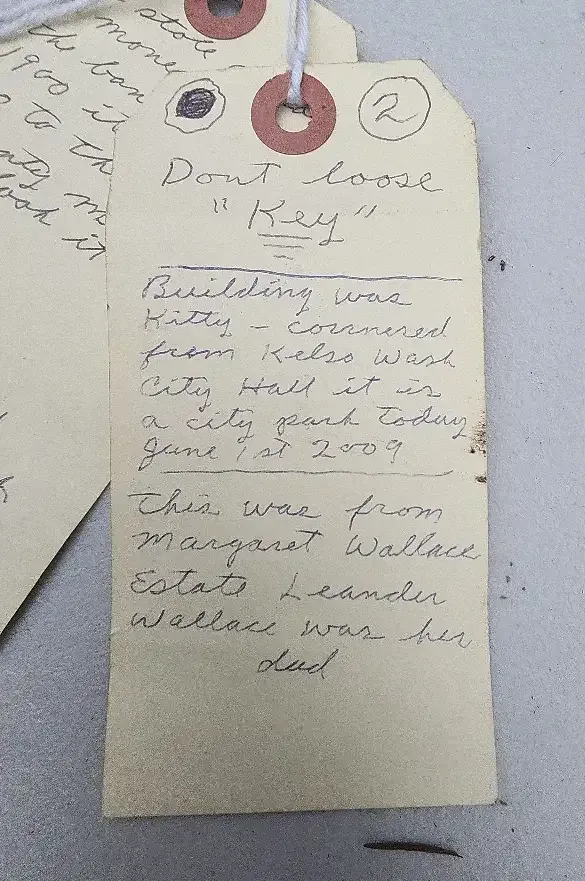 stole
money
the ban
1900 it
to th
nty m
look it
2
Dont loose
"Key"
Building was
Kitty - cornered
from Kelso Wash
City Hall it is
a city park today
June 1st 2009
this was from
Margaret Wallace
Estate Leander
Wallace was her
dad